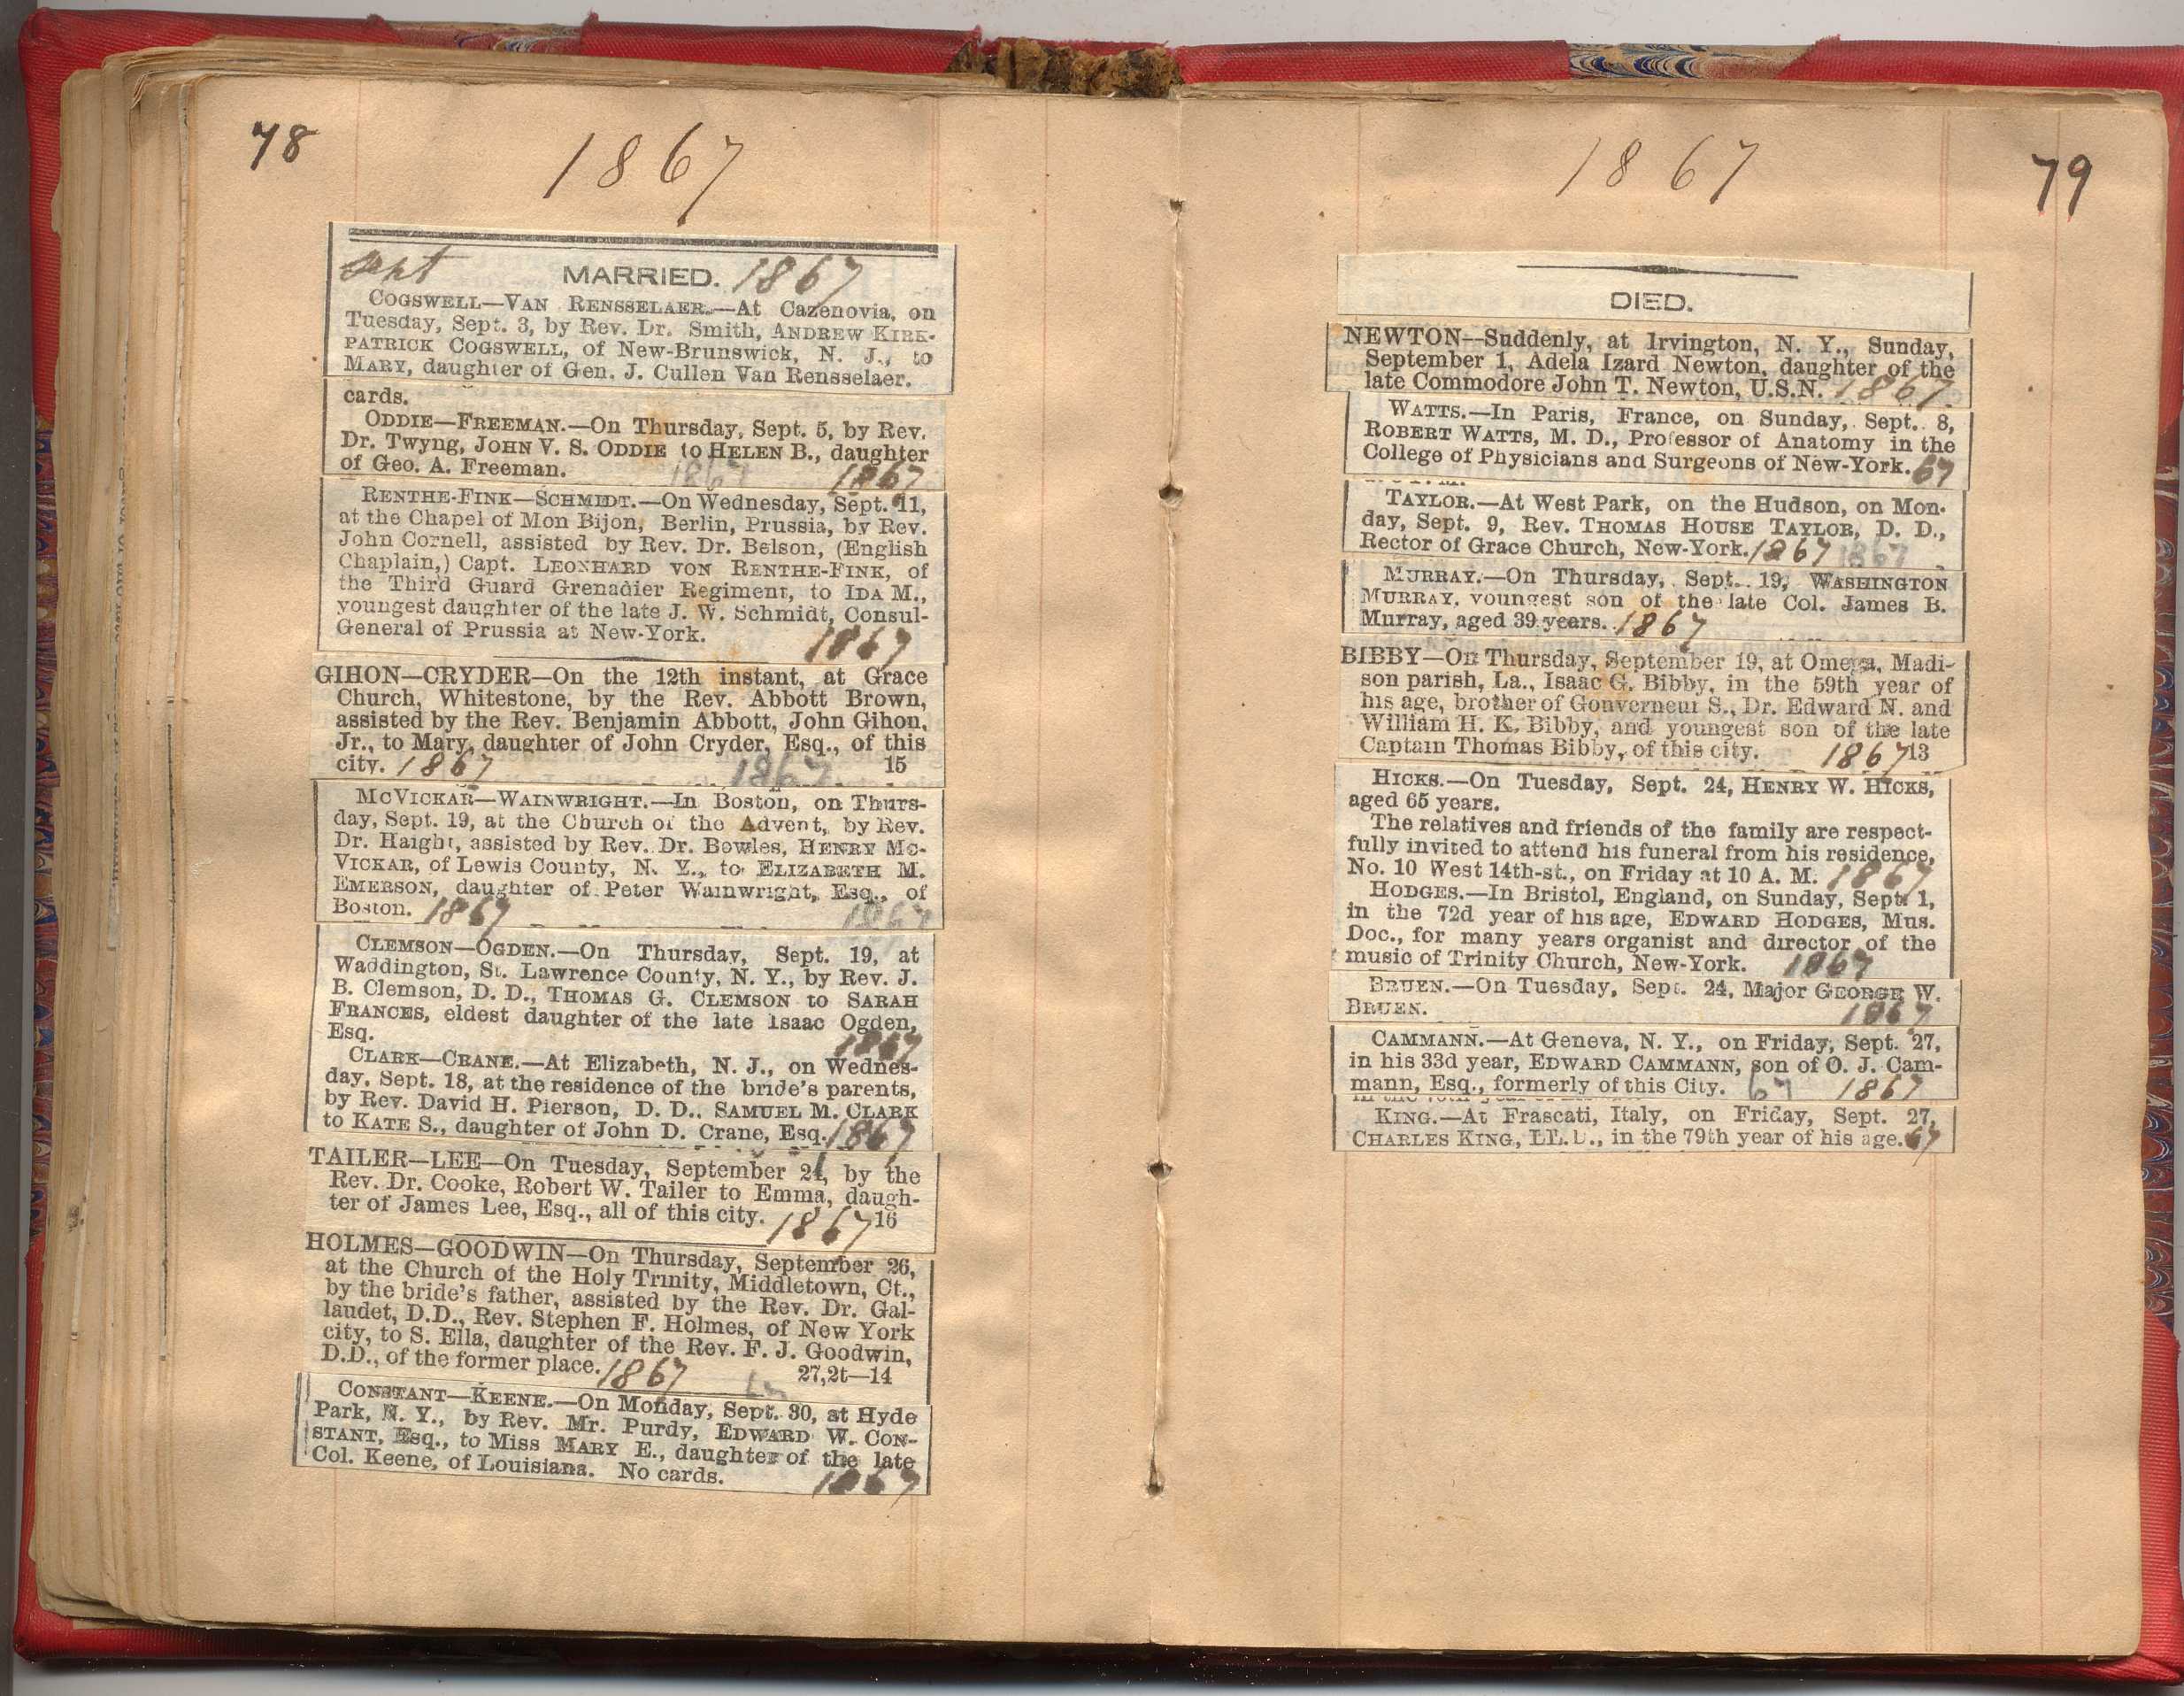 78
1867
sept MARRIED. 1867
COGSWELL—VAN RENSSELAER.—At Cazenovia, on
Tuesday, Sept. 3, by Rev. Dr. Smith, ANDREW KIRK-
PATRICK COGSWELL, of New-Brunswick, N. J., to
MARY, daughter of Gen. J. Cullen Van Rensselaer.
cards.
ODDIE—FREEMAN.—On Thursday, Sept. 5, by Rev.
Dr. Twyng, JOHN V. S. ODDIE to HELEN B., daughter
of Geo. A. Freeman. 1867 1867
RENTHE-FINK—SCHMIDT.—On Wednesday, Sept. 11,
at the Chapel of Mon Bijon, Berlin, Prussia, by Rev.
John Cornell, assisted by Rev. Dr. Belson, (English
Chaplain,) Capt. LEONHARD VON RENTHE-FINK, of
the Third Guard Grenadier Regiment, to IDA M.,
youngest daughter of the late J. W. Schmidt, Consul-
General of Prussia at New-York. 1867
GIHON—CRYDER—On the 12th instant, at Grace
Church, Whitestone, by the Rev. Abbott Brown,
assisted by the Rev. Benjamin Abbott, John Gihon,
Jr., to Mary, daughter of John Cryder, Esq., of this
city. 1867 1867 15
MCVICKAR—WAINWRIGHT.—In Boston, on Thurs-
day, Sept. 19, at the Church of the Advent, by Rev.
Dr. Haight, assisted by Rev. Dr. Bowles, HENRY MC-
VICKAR, of Lewis County, N. Y., to ELIZABETH M.
EMERSON, daughter of Peter Wainwright, Esq., of
Boston. 1867 1867
CLEMSON—OGDEN.—On Thursday, Sept. 19, at
Waddington, St. Lawrence County, N. Y., by Rev. J.
B. Clemson, D. D., THOMAS G. CLEMSON to SARAH
FRANCES, eldest daughter of the late Isaac Ogden,
Esq. 1867
CLARK—CRANE.—At Elizabeth, N. J., on Wednes-
day, Sept. 18, at the residence of the bride's parents,
by Rev. David H. Pierson, D. D., SAMUEL M. CLARK
to KATE S., daughter of John D. Crane, Esq. 1867
TAILER—LEE—On Tuesday, September 24, by the
Rev. Dr. Cooke, Robert W. Tailer to Emma, daugh-
ter of James Lee, Esq., all of this city. 1867 16
HOLMES—GOODWIN—On Thursday, September 26,
at the Church of the Holy Trinity, Middletown, Ct.,
by the bride's father, assisted by the Rev. Dr. Gal-
laudet, D.D., Rev. Stephen F. Holmes, of New York
city, to S. Ella, daughter of the Rev. F. J. Goodwin,
D.D., of the former place. 1867 27,2t—14
CONSTANT—KEENE.—On Monday, Sept. 30, at Hyde
Park, N. Y., by Rev. Mr. Purdy, EDWARD W. CON-
STANT, Esq., to Miss MARY E., daughter of the late
Col. Keene, of Louisiana. No cards. 1867
1867
79
DIED.
NEWTON—Suddenly, at Irvington, N. Y., Sunday,
September 1, Adela Izard Newton, daughter of the
late Commodore John T. Newton, U.S.N. 1867.
WATTS.—In Paris, France, on Sunday, Sept. 8,
ROBERT WATTS, M. D., Professor of Anatomy in the
College of Physicians and Surgeons of New-York. 67
TAYLOR.—At West Park, on the Hudson, on Mon-
day, Sept. 9, Rev. THOMAS HOUSE TAYLOR, D. D.,
Rector of Grace Church, New-York. 1867 1867
MURRAY.—On Thursday, Sept. 19, WASHINGTON
MURRAY, youngest son of the late Col. James B.
Murray, aged 39 years. 1867
BIBBY—On Thursday, September 19, at Omega, Madi-
son parish, La., Isaac G. Bibby, in the 59th year of
his age, brother of Gouverneur S., Dr. Edward N. and
William H. K. Bibby, and youngest son of the late
Captain Thomas Bibby, of this city. 1867 13
HICKS.—On Tuesday, Sept. 24, HENRY W. HICKS,
aged 65 years.
The relatives and friends of the family are respect-
fully invited to attend his funeral from his residence,
No. 10 West 14th-st., on Friday at 10 A. M. 1867
HODGES.—In Bristol, England, on Sunday, Sept. 1,
in the 72d year of his age, EDWARD HODGES, Mus.
Doc., for many years organist and director of the
music of Trinity Church, New-York. 1867
BRUEN.—On Tuesday, Sept. 24, Major GEORGE W.
BRUEN. 1867
CAMMANN.—At Geneva, N. Y., on Friday, Sept. 27,
in his 33d year, EDWARD CAMMANN, son of O. J. Cam-
mann, Esq., formerly of this City. 67 1867
KING.—At Frascati, Italy, on Friday, Sept. 27,
CHARLES KING, LL.D., in the 79th year of his age. 67